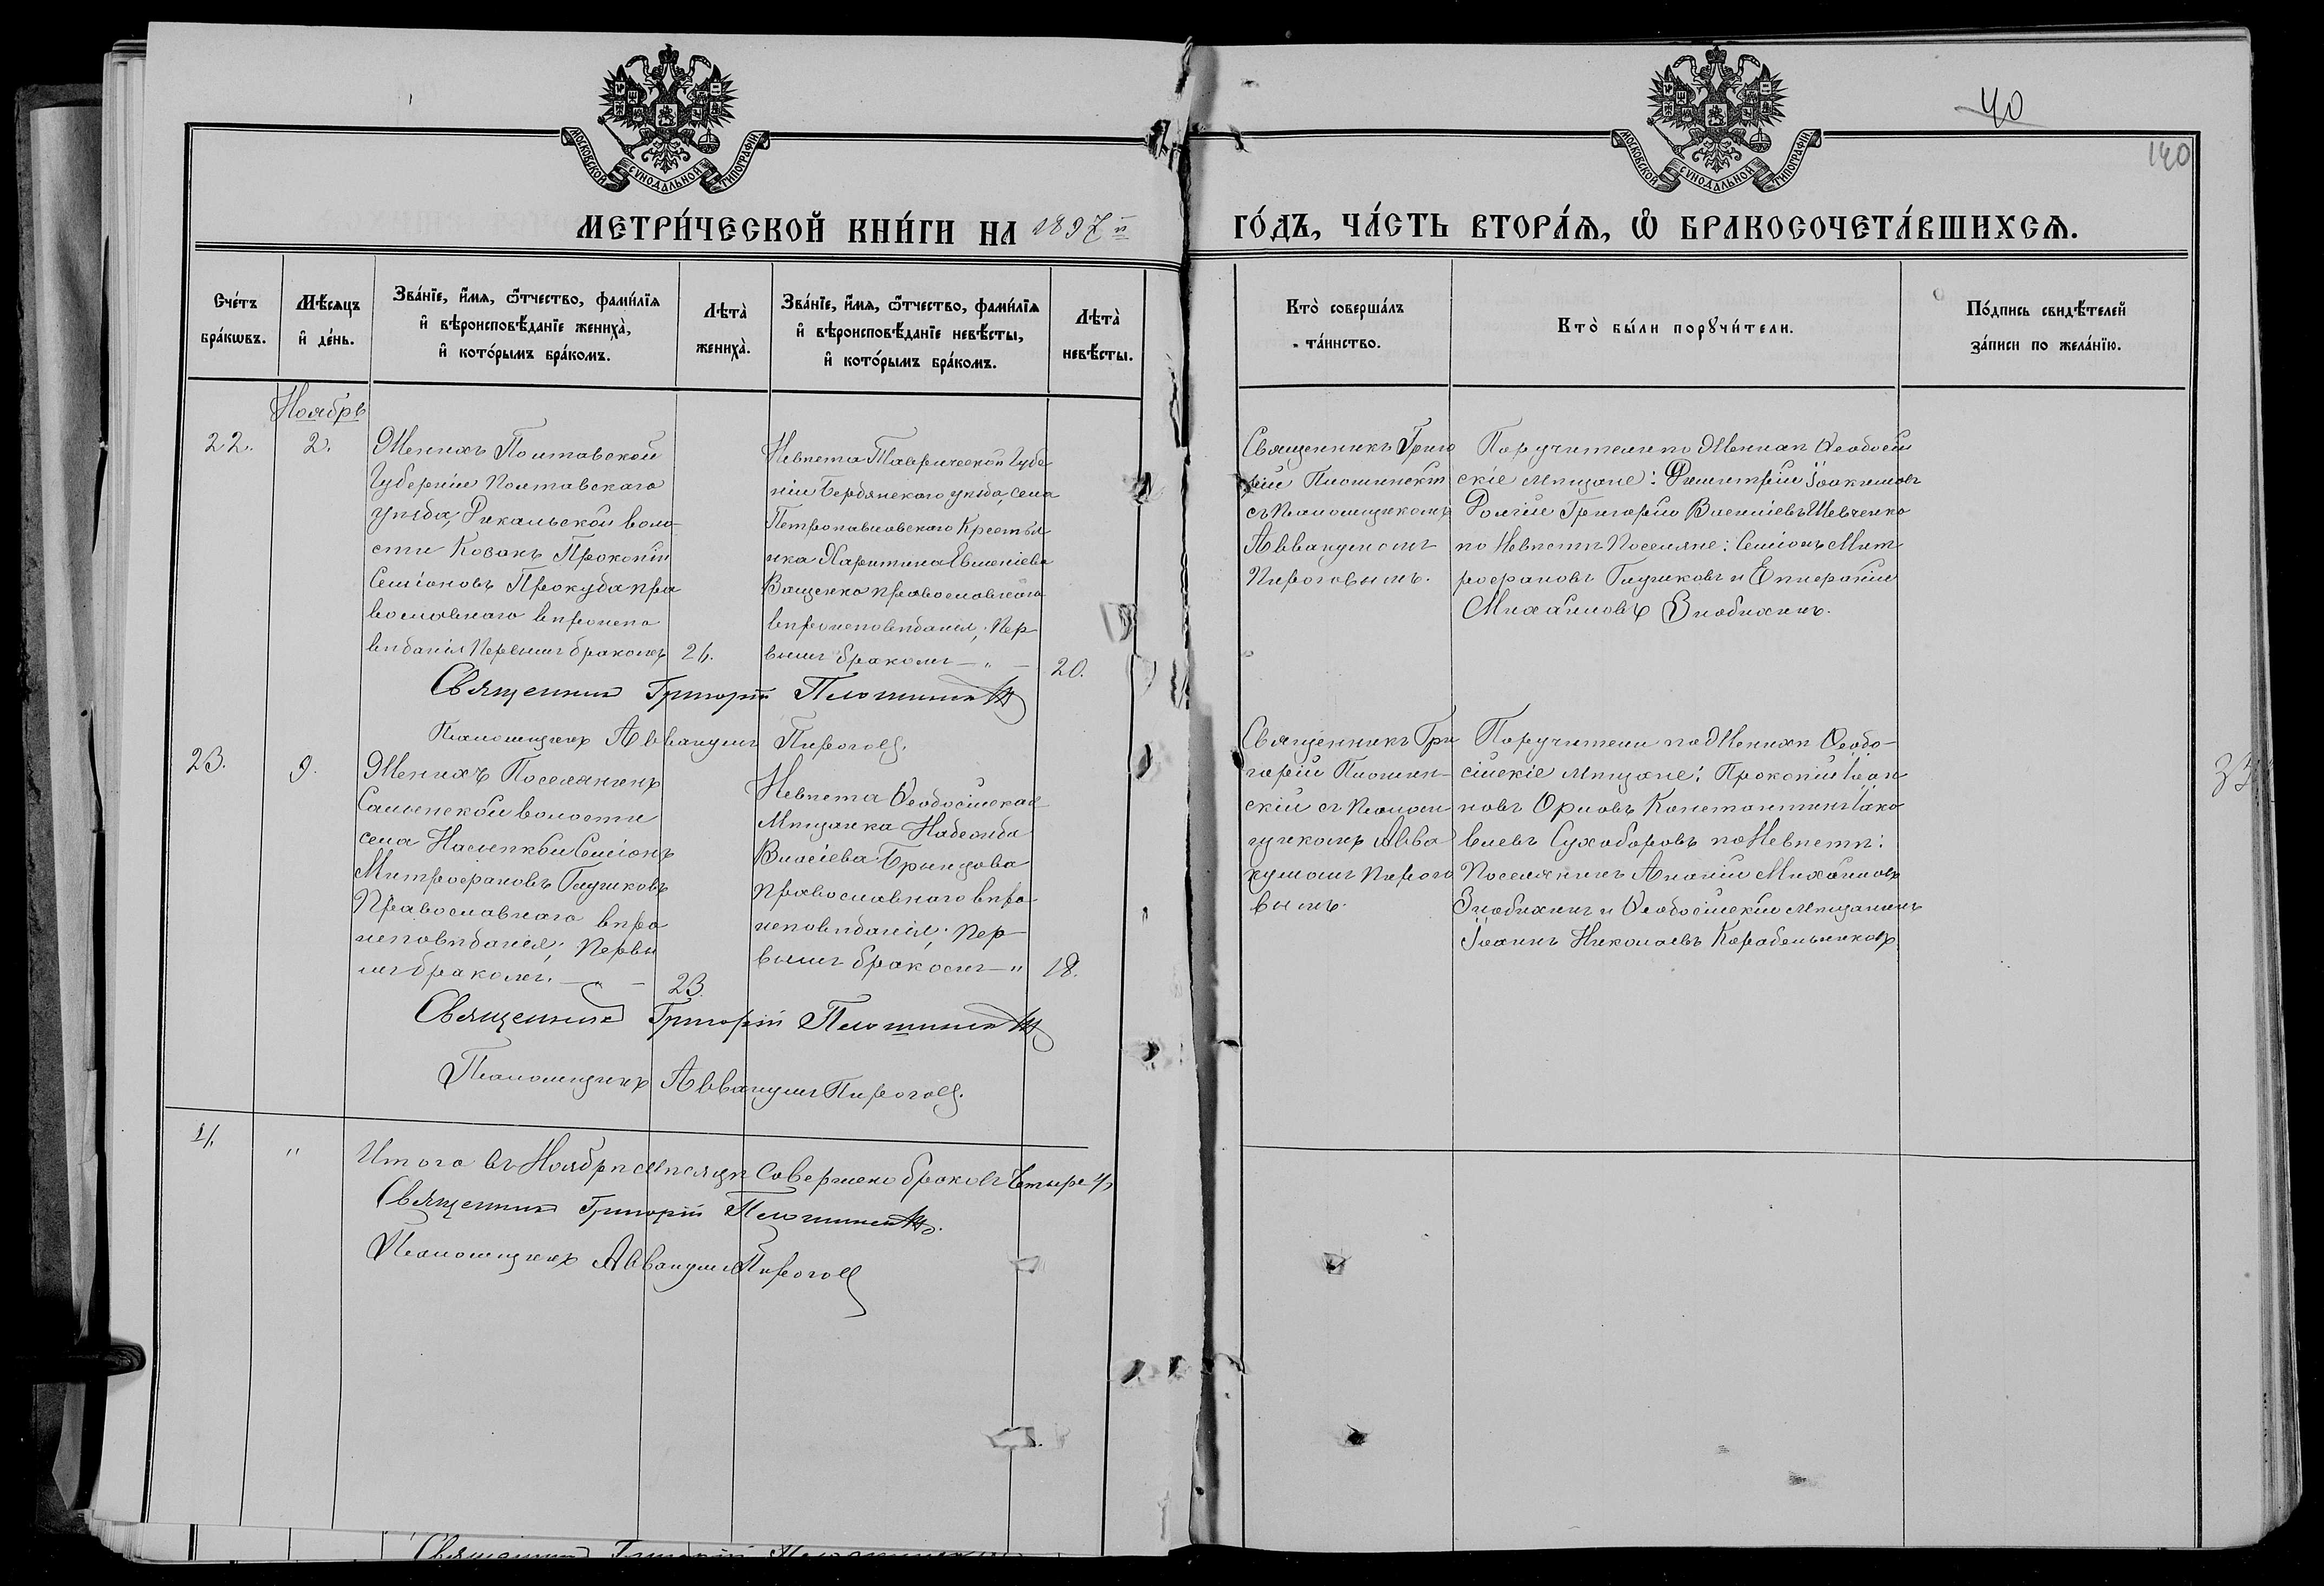 МОСКОВСКОЙ СѴНОДАЛЬНОЙ ТИПОГРАФІИ
МОСКОВСКОЙ СѴНОДАЛЬНОЙ ТИПОГРАФІИ
40
140
МЕТРИ́ЧЕСКОЙ КНИ́ГИ НА 1897й ГО́ДЪ, ЧА́СТЬ ВТОРА́Ѧ, Ѡ҆ БРАКОСОЧЕТА́ВШИХСѦ.
Сче́тъ
бра́кѡвъ.
Мѣ́сяцъ
и҆ де́нь.
Зва́нїе, и҆́мя, ѻ҆́тчество, фами́лїя
и҆ вѣроисповѣ́данїе жениха̀,
и҆ кото́рымъ бра́комъ.
Лѣта̀
жениха̀.
Зва́нїе, и҆́мя, ѻ҆́тчество, фами́лїя
и҆ вѣроисповѣ́данїе невѣ́сты,
и҆ кото́рымъ бра́комъ.
Лѣта̀
невѣ́сты.
Кто̀ соверша́лъ
та́инство.
Кто̀ бы́ли порꙋчи́тели.
По́дпись свидѣ́телей
за́писи по жела́нїю.
Ноябрь
22.
2.
Женихъ Полтавской
Губерніи Полтавскаго
уѣзда, Рикальской воло-
сти Козакъ Прокопій
Семіоновъ Прокуба пра
вославнаго вѣроиспо
вѣданія Первымъ бракомъ
Невѣста Таврической Губе
ніи Бердянскаго уѣзда, села
Петропавловскаго Крестья
нка Харитина Евменіева
Ващенко православнаго
вѣроисповѣданія; Пер
вымъ бракомъ — „ —
20.
Священникъ Григо
рій Плошинскій
съ Псаломщикомъ
Аввакумомъ
Пироговымъ.
Поручители по Женихѣ Ѳеодосій
скіе мѣщане: Димитрій Іоакимовъ
Долгій Григорій Василіевъ Шевченко
по Невѣстѣ Поселяне: Семіонъ Мит
рофановъ Глушковъ и Епифаній
Михаиловъ Знобихинъ.
Священникъ Григорій Плошинскій
Псаломщикъ Аввакумъ Пироговъ.
23.
9.
Женихъ Поселянинъ
Салынской волости
села Насыпкой Семіонъ
Митрофановъ Глушковъ
Православнаго вѣро
исповѣданія; Первы
мъ бракомъ. — „ —
23.
Невѣста Ѳеодосійская
Мѣщанка Надежда
Власіева Брындова
православнаго вѣро
исповѣданія; Пер-
вымъ бракомъ — „
18.
Священникъ Гри
горій Плошин-
скій съ Псалом
щикомъ Авва
кумомъ Пирого
вымъ.
Поручители по Женихѣ Ѳеодо-
сійскіе мѣщане: Прокопій Іоан
новъ Орловъ Константинъ Іако
влевъ Сухоборовъ по Невѣстѣ:
Поселянинъ Ананій Михаиловъ
Знобихинъ и Ѳеодосійскій мѣщанинъ
Іоаннъ Николаевъ Корабельниковъ
Священникъ Григорій Плошинскій
Псаломщикъ Аввакумъ Пироговъ.
4.
„
Итого въ Ноябрѣ мѣсяцѣ Совершено браковъ Четыре 4
Священникъ Григорій Плошинскій.
Псаломщикъ Аввакумъ Пироговъ
Священникъ Григорій Плошинскій